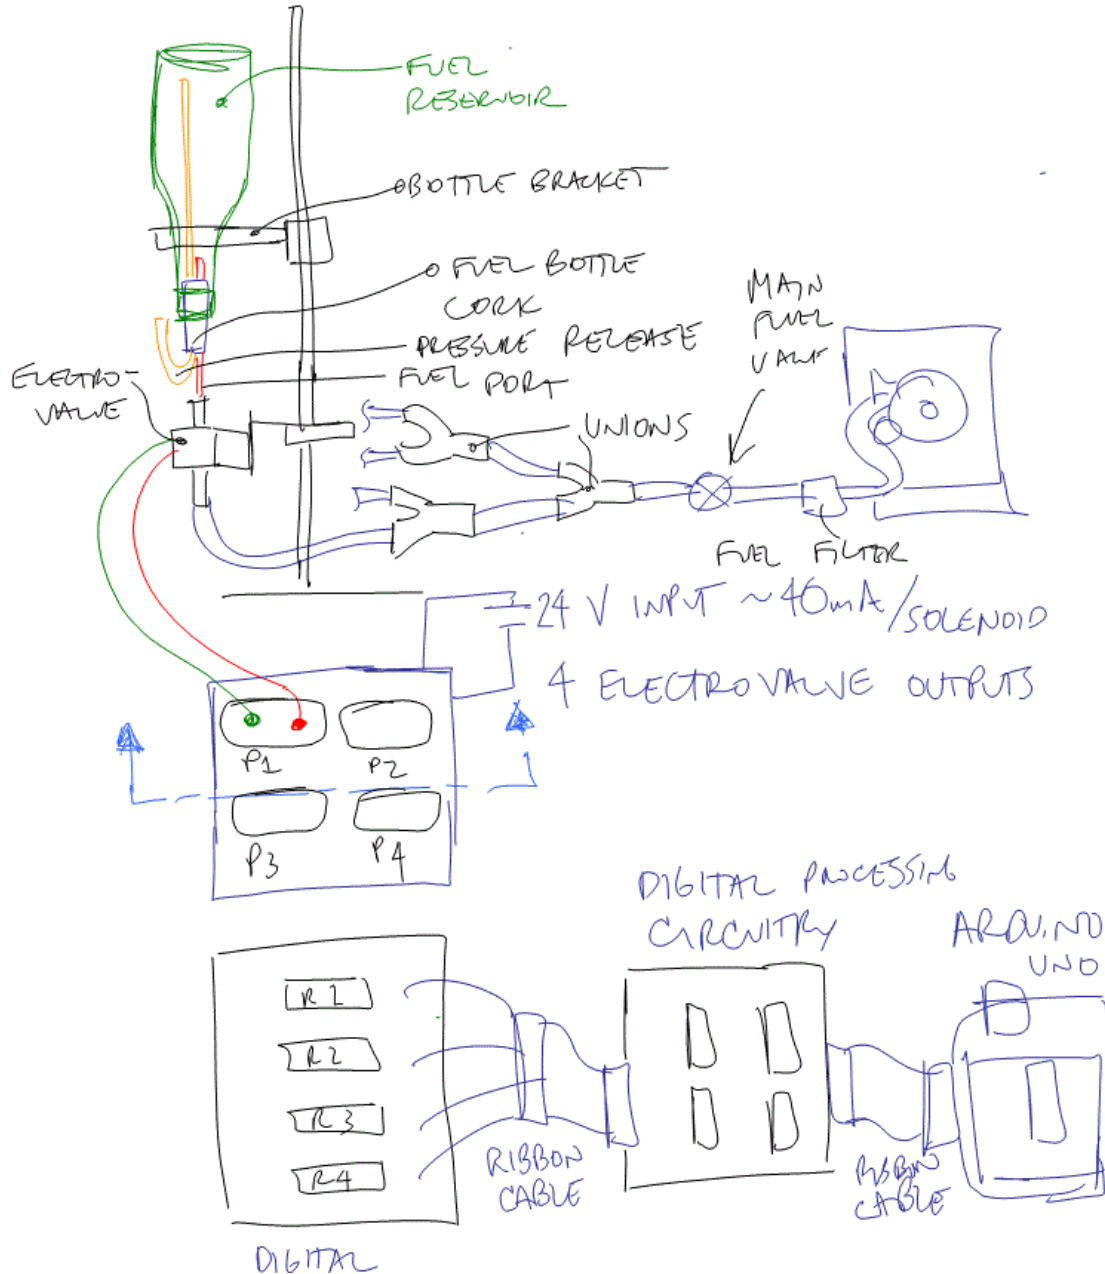 FUEL
RESERVOIR
BOTTLE BRACKET
FUEL BOTTLE
CORK
PRESSURE RELEASE
FUEL PORT
ELECTRO-
VALVE
MAIN
FUEL
VALVE
UNIONS
FUEL FILTER
24 V INPUT ~40mA/SOLENOID
4 ELECTROVALVE OUTPUTS
P1
P2
P3
P4
DIGITAL PROCESSING
CIRCUITRY
ARDUINO
UNO
R1
R2
R3
R4
RIBBON
CABLE
RIBBON
CABLE
DIGITAL